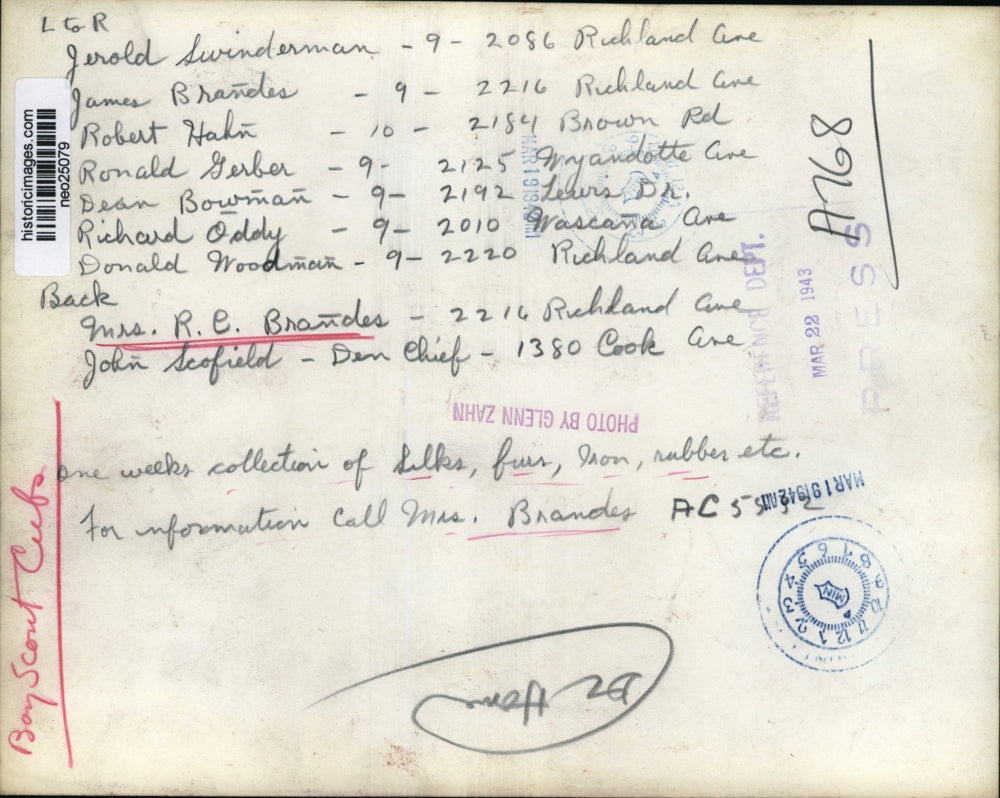 L to R
Jerold Swinderman - 9 - 2086 Richland Ave
James Brandes - 9 - 2216 Richland Ave
Robert Hahn - 10 - 2184 Brown Rd
Ronald Gerber - 9 - 2125 Wyandotte Ave
Dean Bowman - 9 - 2192 Lewis Dr.
Richard Oddy - 9 - 2010 Wascana Ave
Donald Woodman - 9 - 2220 Richland Ave
Back
Mrs. R. C. Brandes - 2216 Richland Ave
John Scofield - Den Chief - 1380 Cook Ave
PHOTO BY GLENN ZAHN
One weeks collection of Silks, furs, Iron, rubber etc.
For information Call Mrs. Brandes AC 5592
Boy Scout Cubs
historicimages.com
neo25079
A768
REFERENCE DEPT.
MAR 22 1943
PRESS
MAR 19 1942
MAR 19 1942
1 2 3 4 5 6 7 8 9 10 11 12
MIN